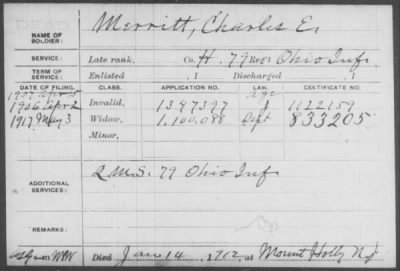 DEAD
NAME OF SOLDIER: Merritt, Charles E.
SERVICE: Late rank, Co. H, 79 Reg't Ohio Inf.
TERM OF SERVICE: Enlisted , 1 Discharged , 1
DATE OF FILING. CLASS. APPLICATION NO. LAW. CERTIFICATE NO.
1907 Apr 5
1906 Apr 2 Invalid, 1347397 J 1122159
1917, May 3 Widow, 1.100.088 Sept 833205
Minor,
ADDITIONAL SERVICES: Q.M.S. 79 Ohio Inf
REMARKS:
Died Jan 14, 1912, at Mount Holly N.J.